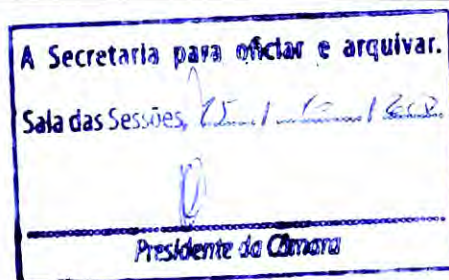 A Secretaria para oficiar e arquivar.
Sala das Sessões, 15 / /
Presidente da Câmara